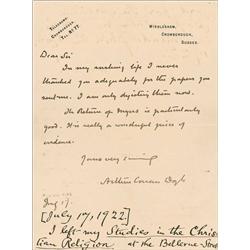 TELEGRAMS,
CROWBOROUGH.
TEL. No 77.
WINDLESHAM,
CROWBOROUGH,
SUSSEX.
Dear Sir
In my rushing life I never
thanked you adequately for the papers you
sent me. I am only digesting them now.
The Return of Myers is particularly
good. It is really a wonderful piece of
evidence.
Yours very sincerely
Arthur Conan Doyle
July 17.
[July 17, 1922]
I left my Studies in the Chris-
tian Religion at the Bellevue-Strat